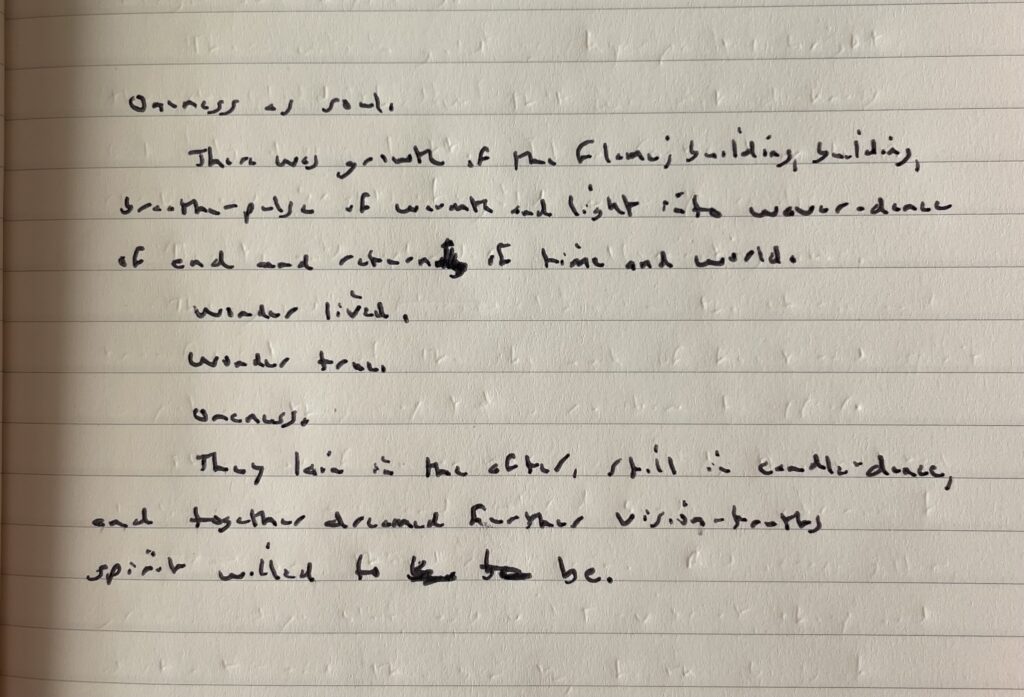 Oneness as soul.
There was growth of the flame; building, building,
breathe-pulse of warmth and light into waver-dance
of end and return of time and world.
Wonder lived.
Wonder true.
Oneness.
They lain in the after, still in candle-dance,
and together dreamed further vision-truths
spirit willed to be.